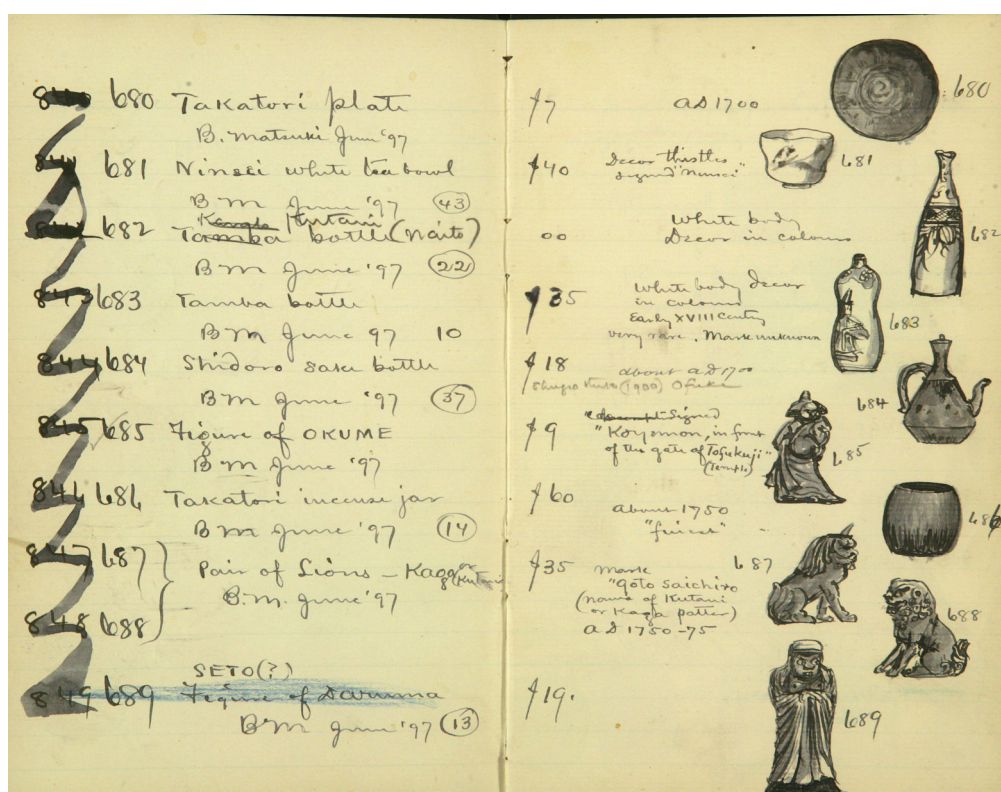 840 680 Takatori plate
B. Matsuki June '97
841 681 Ninsei white tea bowl
B M June '97 (43)
Kutani
682 Tamba bottle (Naito)
B M June '97 (22)
843 683 Tamba bottle
B M June 97 10
844 684 Shidoro sake bottle
B M June '97 (37)
845 685 Figure of OKUME
B M June '97
686 Takatori incense jar
B M June '97 (14)
847 687
Pair of Lions – Kaga or Kutani
B.M. June '97
848 688
SETO(?)
849 689 Figure of Daruma
B M June '97 (13)
$7 AD 1700
680
$40 Decor thistles
signed "Ninsei"
681
00 White body
Decor in colours
682
$35 White body Decor
in colours
Early XVIII Century
very rare. Mark unknown
683
$18 about AD 1700
(1900)
684
$9 Signed
"Koyemon, in front
of the gate of Tofukuji"
(Temple)
685
$60 about 1750
686
$35 Mark
"Goto Saichiro
(name of Kutani
or Kaga potter)
AD 1750-75
687
688
$19.
689